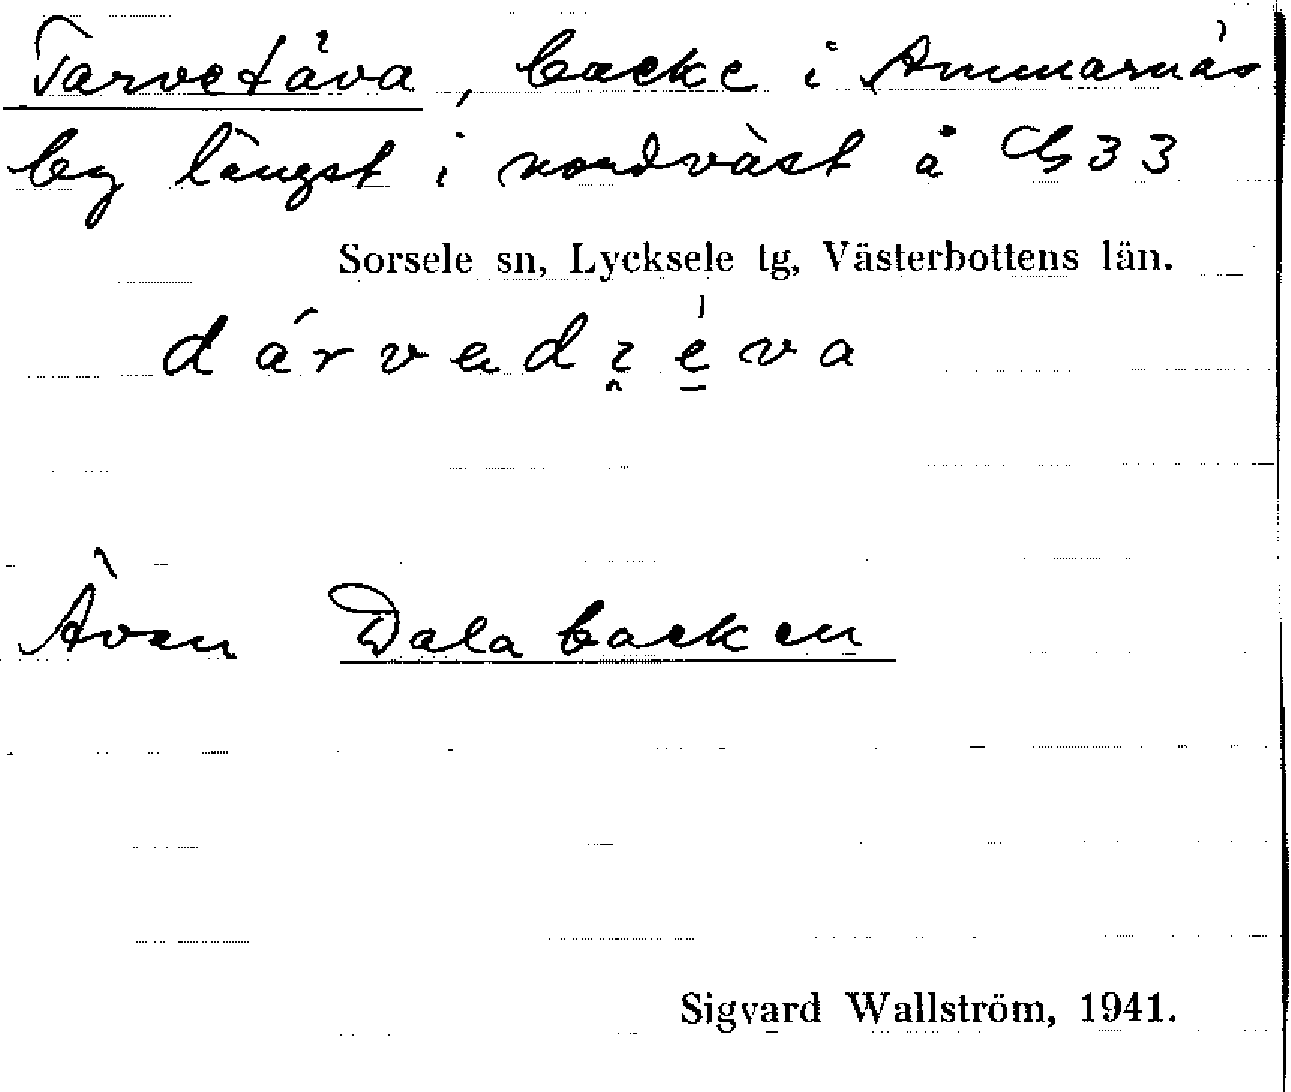 Tarvetäva, backe i Ammarnäs
by längst i nordväst å G33
Sorsele sn, Lycksele tg, Västerbottens län.
Även Dalabacken
Sigvard Wallström, 1941.